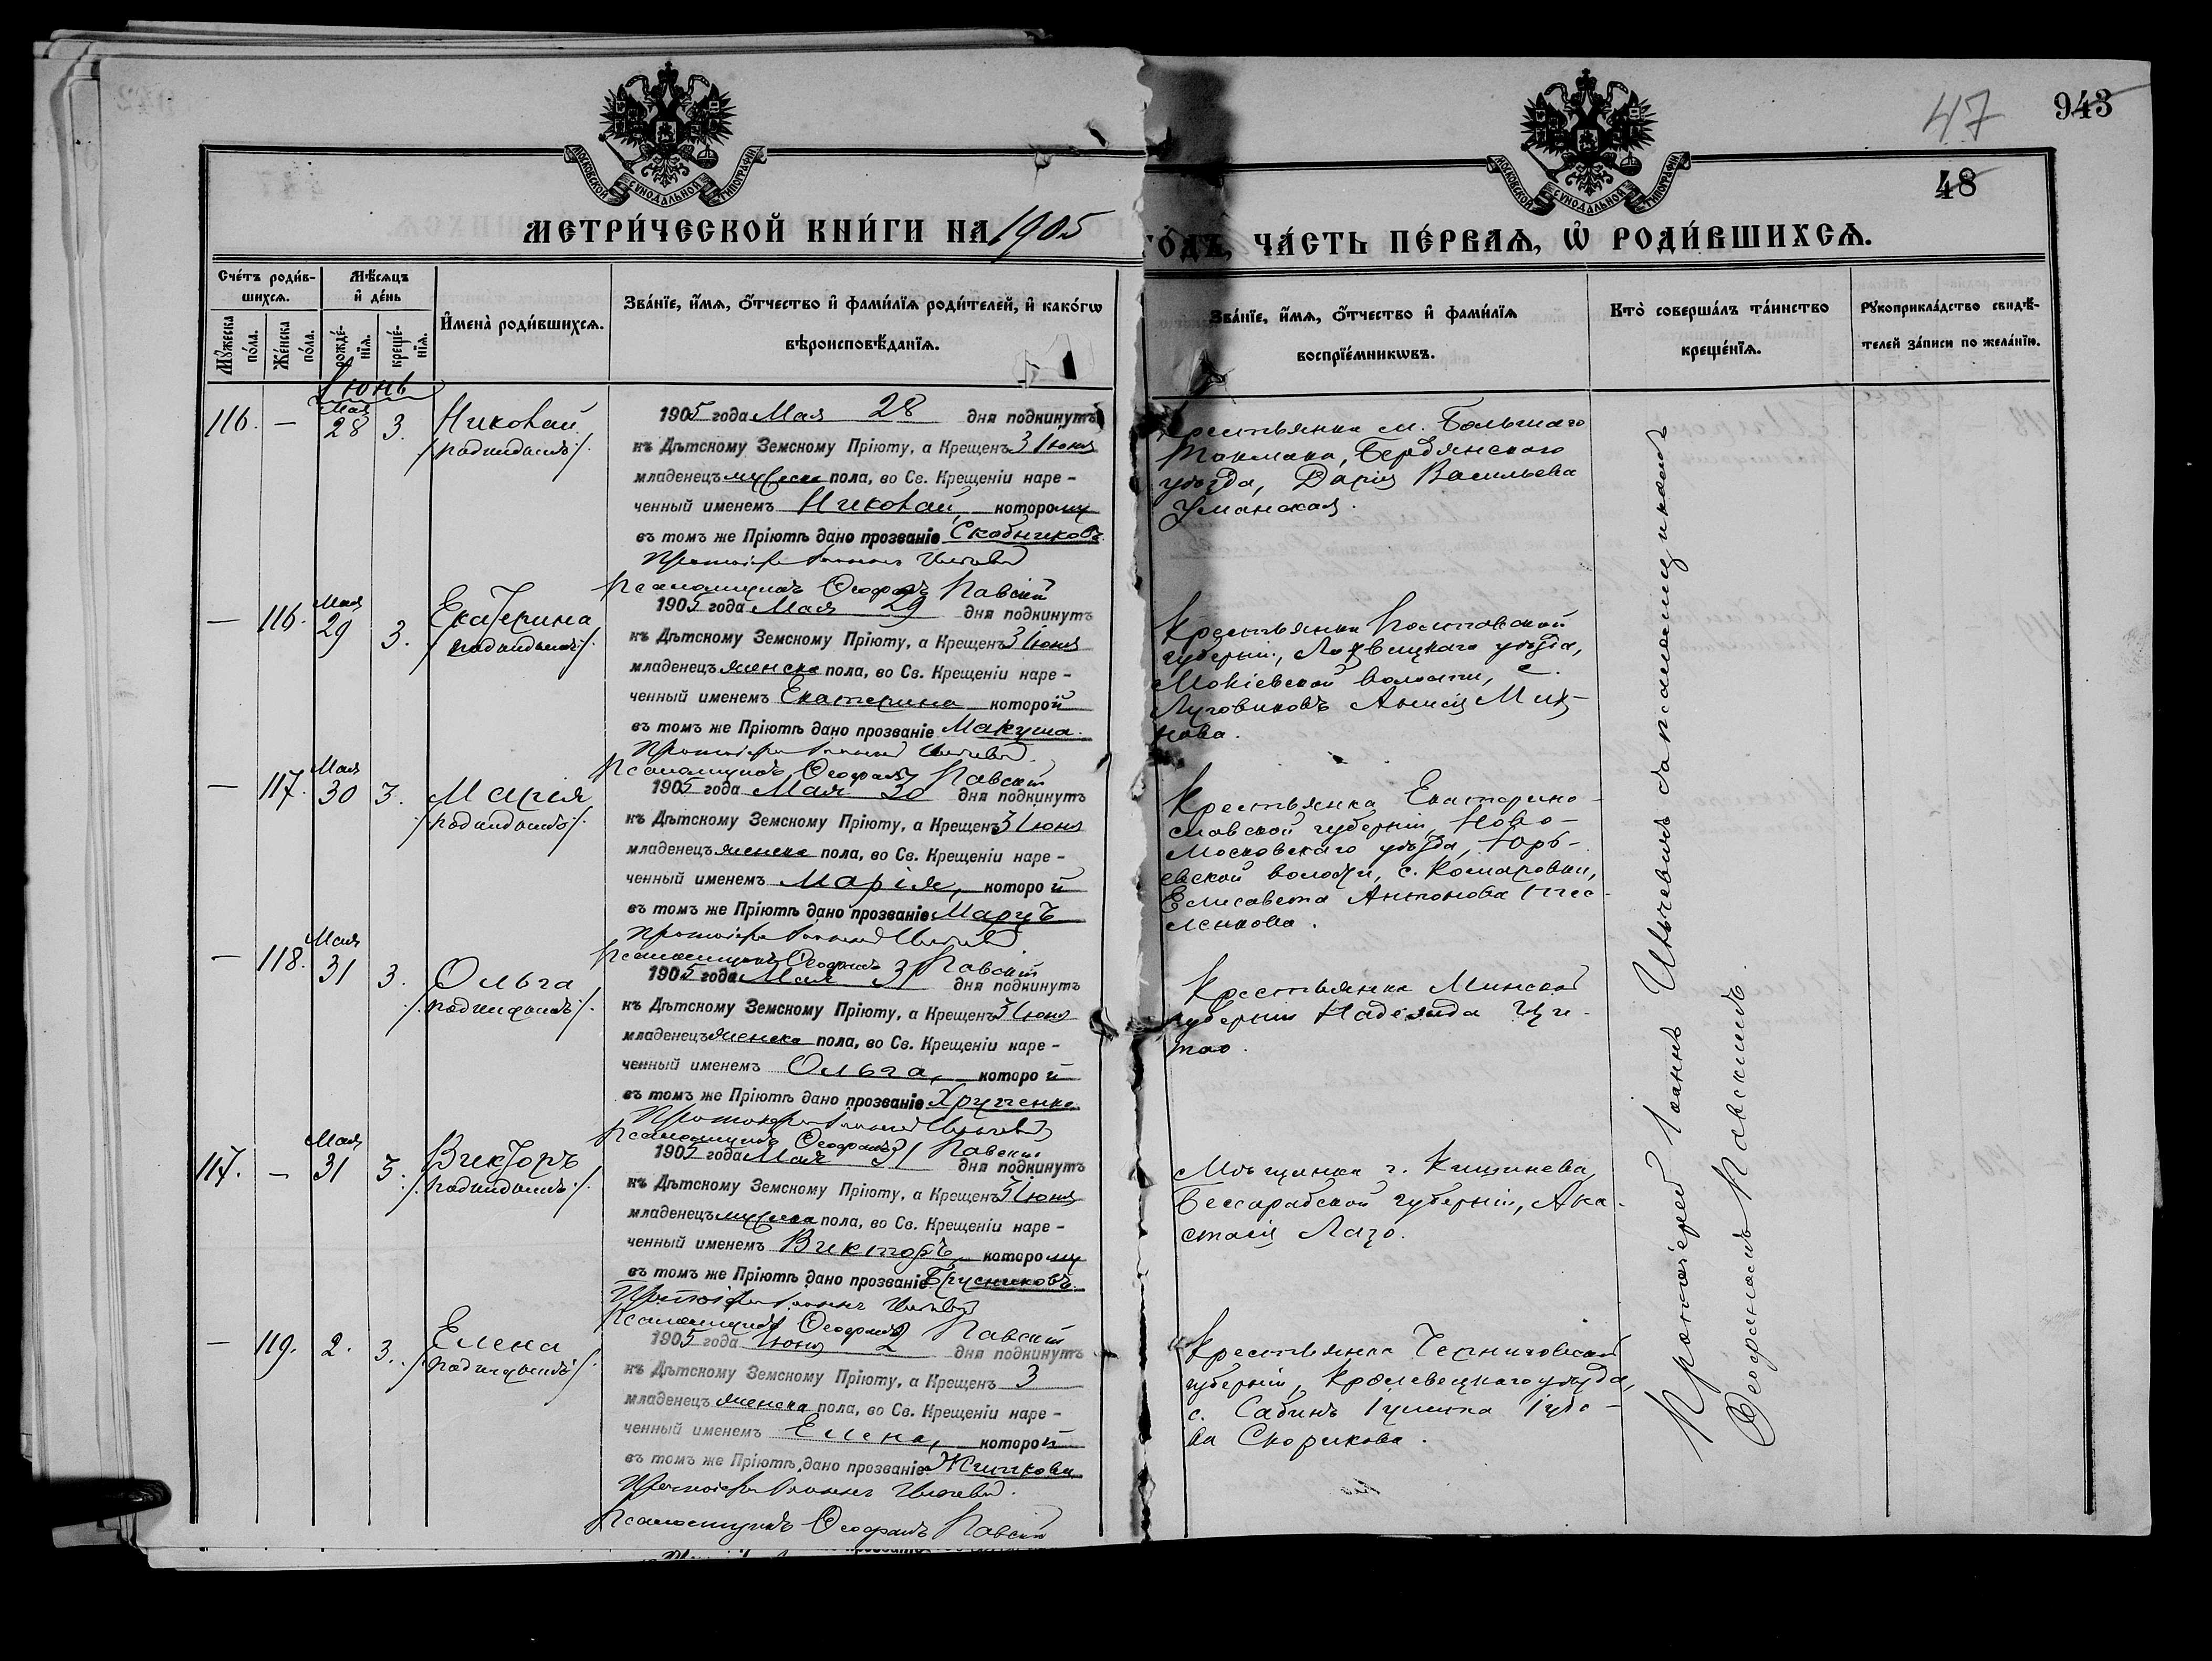 47
943
48
МОСКОВСКОЙ СѴНОДАЛЬНОЙ ТИПОГРАФІИ
МОСКОВСКОЙ СѴНОДАЛЬНОЙ ТИПОГРАФІИ
МЕТРИ́ЧЕСКОЙ КНИ́ГИ НА 1905 ГО́ДЪ, ЧА́СТЬ ПЕ́РВАѦ, Ѡ РОДИ́ВШИХСѦ.
Сче́тъ роди́в-
шихсѧ.
Мꙋ́жеска по́ла.
Же́нска по́ла.
Мѣ́сѧцъ
и҆ де́нь
рожде́-
нїѧ.
креще́-
нїѧ.
И҆мена̀ роди́вшихсѧ.
Зва́нїе, и҆́мѧ, ѻ҆́тчество и҆ фами́лїѧ роди́телей, и҆ како́гѡ
вѣроисповѣ́данїѧ.
Зва́нїе, и҆́мѧ, ѻ҆́тчество и҆ фами́лїѧ
воспрїе́мникѡвъ.
Кто̀ соверша́лъ та́инство
креще́нїѧ.
Рꙋкоприкла́дство свидѣ́-
телей за́писи по жела́нїю.
Іюнь
116. — Мая 28 3. Николай
/подкидышъ/.
1905 года Мая 28 дня подкинутъ
къ Дѣтскому Земскому Пріюту, а Крещенъ 3 Іюня
младенецъ мужеска пола, во Св. Крещеніи наре-
ченный именемъ Николай, которому
въ томъ же Пріютѣ дано прозваніе Скобниковъ.
Протоіерей Іоаннъ
Псаломщикъ Ѳеофанъ Павскій
Крестьянка м. Большаго
Токмака, Бердянскаго
уѣзда, Дарія Васильева
Уманская.
— 116. Мая 29 3. Екатерина
/подкидышъ/.
1905 года Мая 29 дня подкинутъ
къ Дѣтскому Земскому Пріюту, а Крещенъ 3 Іюня
младенецъ женска пола, во Св. Крещеніи наре-
ченный именемъ Екатерина которой
въ томъ же Пріютѣ дано прозваніе Макуша.
Протоіерей Іоаннъ
Псаломщикъ Ѳеофанъ Павскій
Крестьянка Полтавской
губерніи, Лохвицкаго уѣзда,
Мокіевской волости, с.
Луговиковъ Анисія Мих-
нова.
— 117. Мая 30 3. Марія
/подкидышъ/.
1905 года Мая 30 дня подкинутъ
къ Дѣтскому Земскому Пріюту, а Крещенъ 3 Іюня
младенецъ женска пола, во Св. Крещеніи наре-
ченный именемъ Марія, которой
въ томъ же Пріютѣ дано прозваніе Маруъ
Протоіерей Іоаннъ
Псаломщикъ Ѳеофанъ Павскій
Крестьянка Екатерино-
славской губерніи, Ново-
Московскаго уѣзда, Юрь-
евской волости, с. Комаровки,
Елисавета Антонова Тес-
ленкова.
— 118. Мая 31 3. Ольга
/подкидышъ/.
1905 года Мая 31 дня подкинутъ
къ Дѣтскому Земскому Пріюту, а Крещенъ 3 Іюня
младенецъ женска пола, во Св. Крещеніи наре-
ченный именемъ Ольга, которой
въ томъ же Пріютѣ дано прозваніе Хрущенко.
Протоіерей Іоаннъ
Псаломщикъ Ѳеофанъ Павскій
Крестьянка Минской
губерніи Надежда
117. — Мая 31 3. Викторъ
/подкидышъ/.
1905 года Мая 31 дня подкинутъ
къ Дѣтскому Земскому Пріюту, а Крещенъ 3 Іюня
младенецъ мужеска пола, во Св. Крещеніи наре-
ченный именемъ Викторъ, которому
въ томъ же Пріютѣ дано прозваніе Брусниковъ.
Протоіерей Іоаннъ
Псаломщикъ Ѳеофанъ Павскій
Мѣщанка г. Кишинева,
Бессарабской губерніи, Ана-
стасія Лазо.
— 119. 2. 3. Елена
/подкидышъ/.
1905 года Іюня 2 дня подкинутъ
къ Дѣтскому Земскому Пріюту, а Крещенъ 3
младенецъ женска пола, во Св. Крещеніи наре-
ченный именемъ Елена, которой
въ томъ же Пріютѣ дано прозваніе Жичкова
Протоіерей Іоаннъ
Псаломщикъ Ѳеофанъ Павскій
Крестьянка Черниговской
губерніи, Кролевецкаго уѣзда,
с. Скорикова.
Протоіерей Іоаннъ съ псаломщикомъ
Ѳеофаномъ Павскимъ.